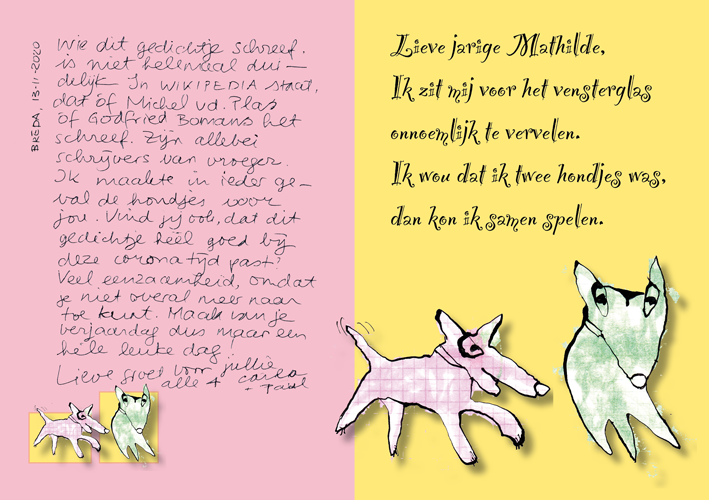 BREDA, 13-11-2020
Wie dit gedichtje schreef.
is niet helemaal dui-
delijk In WIKIPEDIA staat,
dat óf Michel vd. Plas
óf Godfried Bomans het
schreef. Zijn allebei
schrijvers van vroeger.
Ik maakte in ieder ge-
val de hondjes voor
jou. Vind jij ook, dat dit
gedichtje héél goed bij
deze coronatijd past?
Veel eenzaamheid, omdat
je niet overal meer naar
toe kunt. Maak van je
verjaardag dus maar een
héle leuke dag
Lieve groet voor jullie
alle 4 
+ Paul
Lieve jarige Mathilde,
Ik zit mij voor het vensterglas
onnoemlijk te vervelen.
Ik wou dat ik twee hondjes was,
dan kon ik samen spelen.